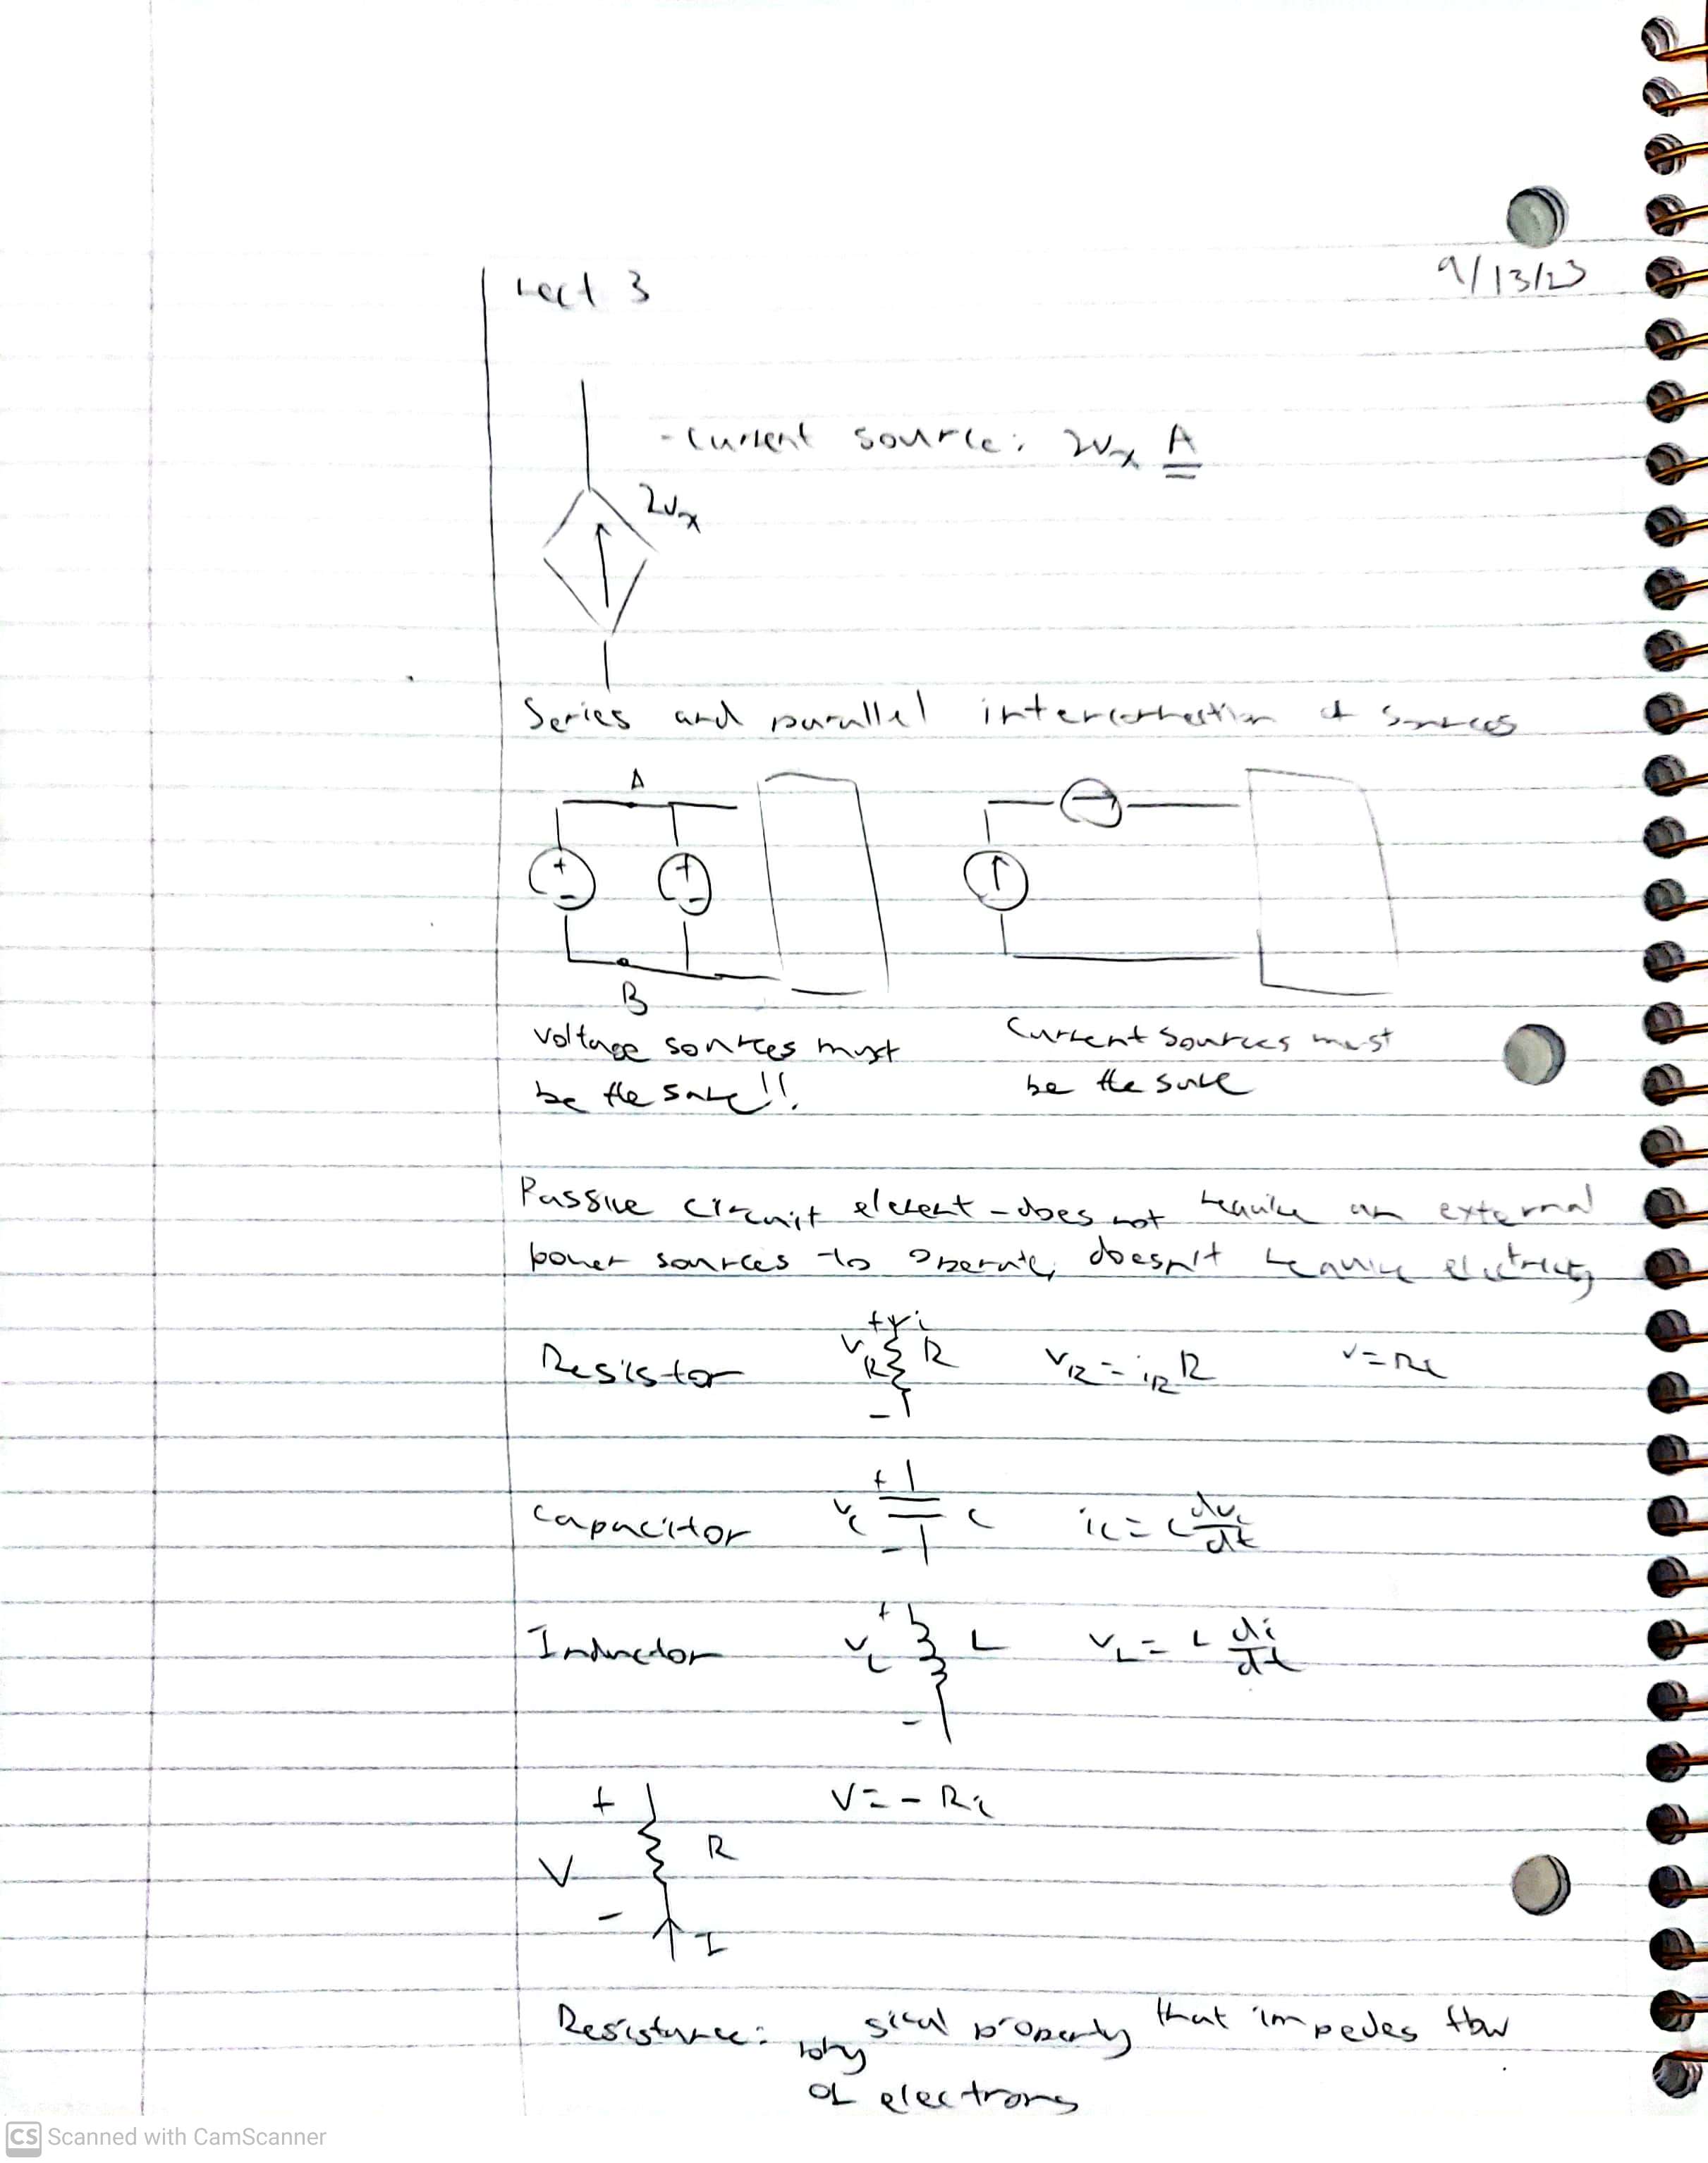 Lect 3
9/13/23
- Current source: 2vx A
2vx
Series and parallel interconnection of sources
A
+ +
- -
B
Voltage sources must
be the same!!
Current sources must
be the same
Passive circuit element - does not require an external
power sources to operate, doesn't require electricity
Resistor + i vR R - vR = iR R v = Ri
Capacitor + vc C - ic = C dvc/dt
Inductor + vL L - vL = L di/dt
+ V = - Ri
V R
- I
Resistance: physical property that impedes flow
of electrons
CS Scanned with CamScanner